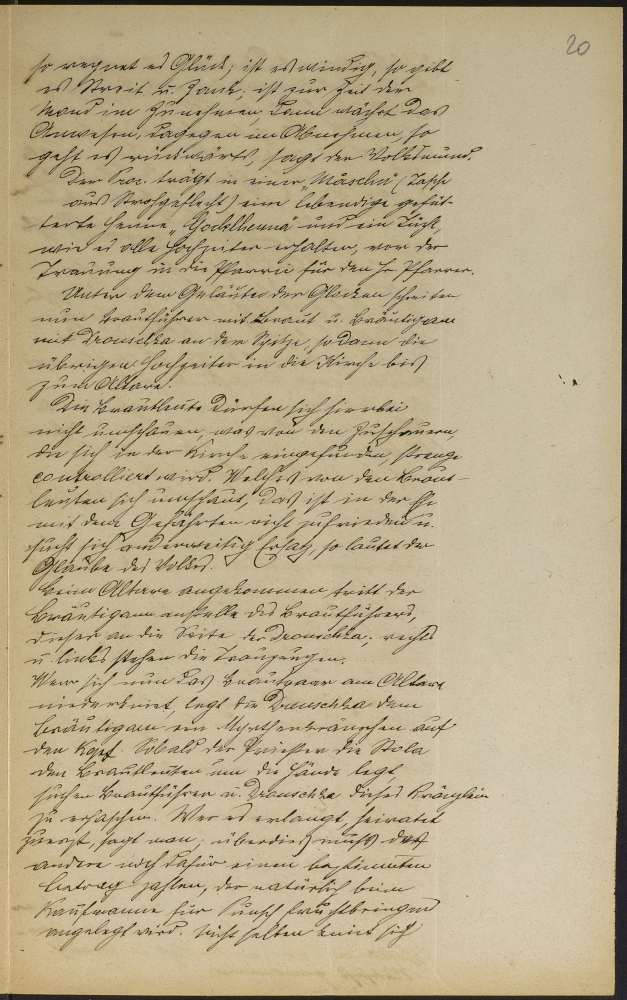 20
so regnet es Glück; ist es windig, so gibt
es Streit u. Zank; ist zur Zeit der
Mond im Zunehmen, dann wächst das
Anwesen, dagegen im Abnehmen, so
geht es rückwärts, sagt der Volksmund.
Der Proc. trägt in einer „Māschn" (Tasche
aus Strohgeflecht) eine lebendige gefüt-
terte Henne „Godlhenná" und ein Tuch,
wie es alle Hochzeiter erhalten, vor der
Trauung in die Pfarrei für den H. Pfarrer.
Unter dem Geläute der Glocken schreiten
nun Brautführer mit Braut u. Bräutigam
mit Drouschka an der Spitze, sodann die
übrigen Hochzeiter in die Kirche bis
zum Altare.
Die Brautleute dürfen sich hierbei
nicht umschauen, was von den Zuschauern,
die sich in der Kirche eingefunden, strenge
controlliert wird. Welches von den Braut-
leuten sich umschaut, das ist in der Ehe
mit dem Gefährten nicht zufrieden u.
sucht sich anderweitig Ersatz, so lautet der
Glaube des Volkes.
Beim Altare angekommen, tritt der
Bräutigam anstelle des Brautführers,
dieser an die Seite der Drouschka; rechts
u. links stehen die Trauzeugen.
Wenn sich nun das Brautpaar am Altare
niederkniet, legt die Drouschka dem
Bräutigam ein Myrthenkränzchen auf
den Kopf. Sobald der Priester die Stola
den Brautleuten um die Hände legt,
suchen Brautführer u. Drouschka dieses Kränzlein
zu erhaschen. Wer es erlangt, heiratet
zuerst, sagt man; überdies muß das
andere noch dafür einen bestimmten
Betrag zahlen, der natürlich beim
Kaufmanne für Punsch fruchtbringend
angelegt wird. Nicht selten kniet sich